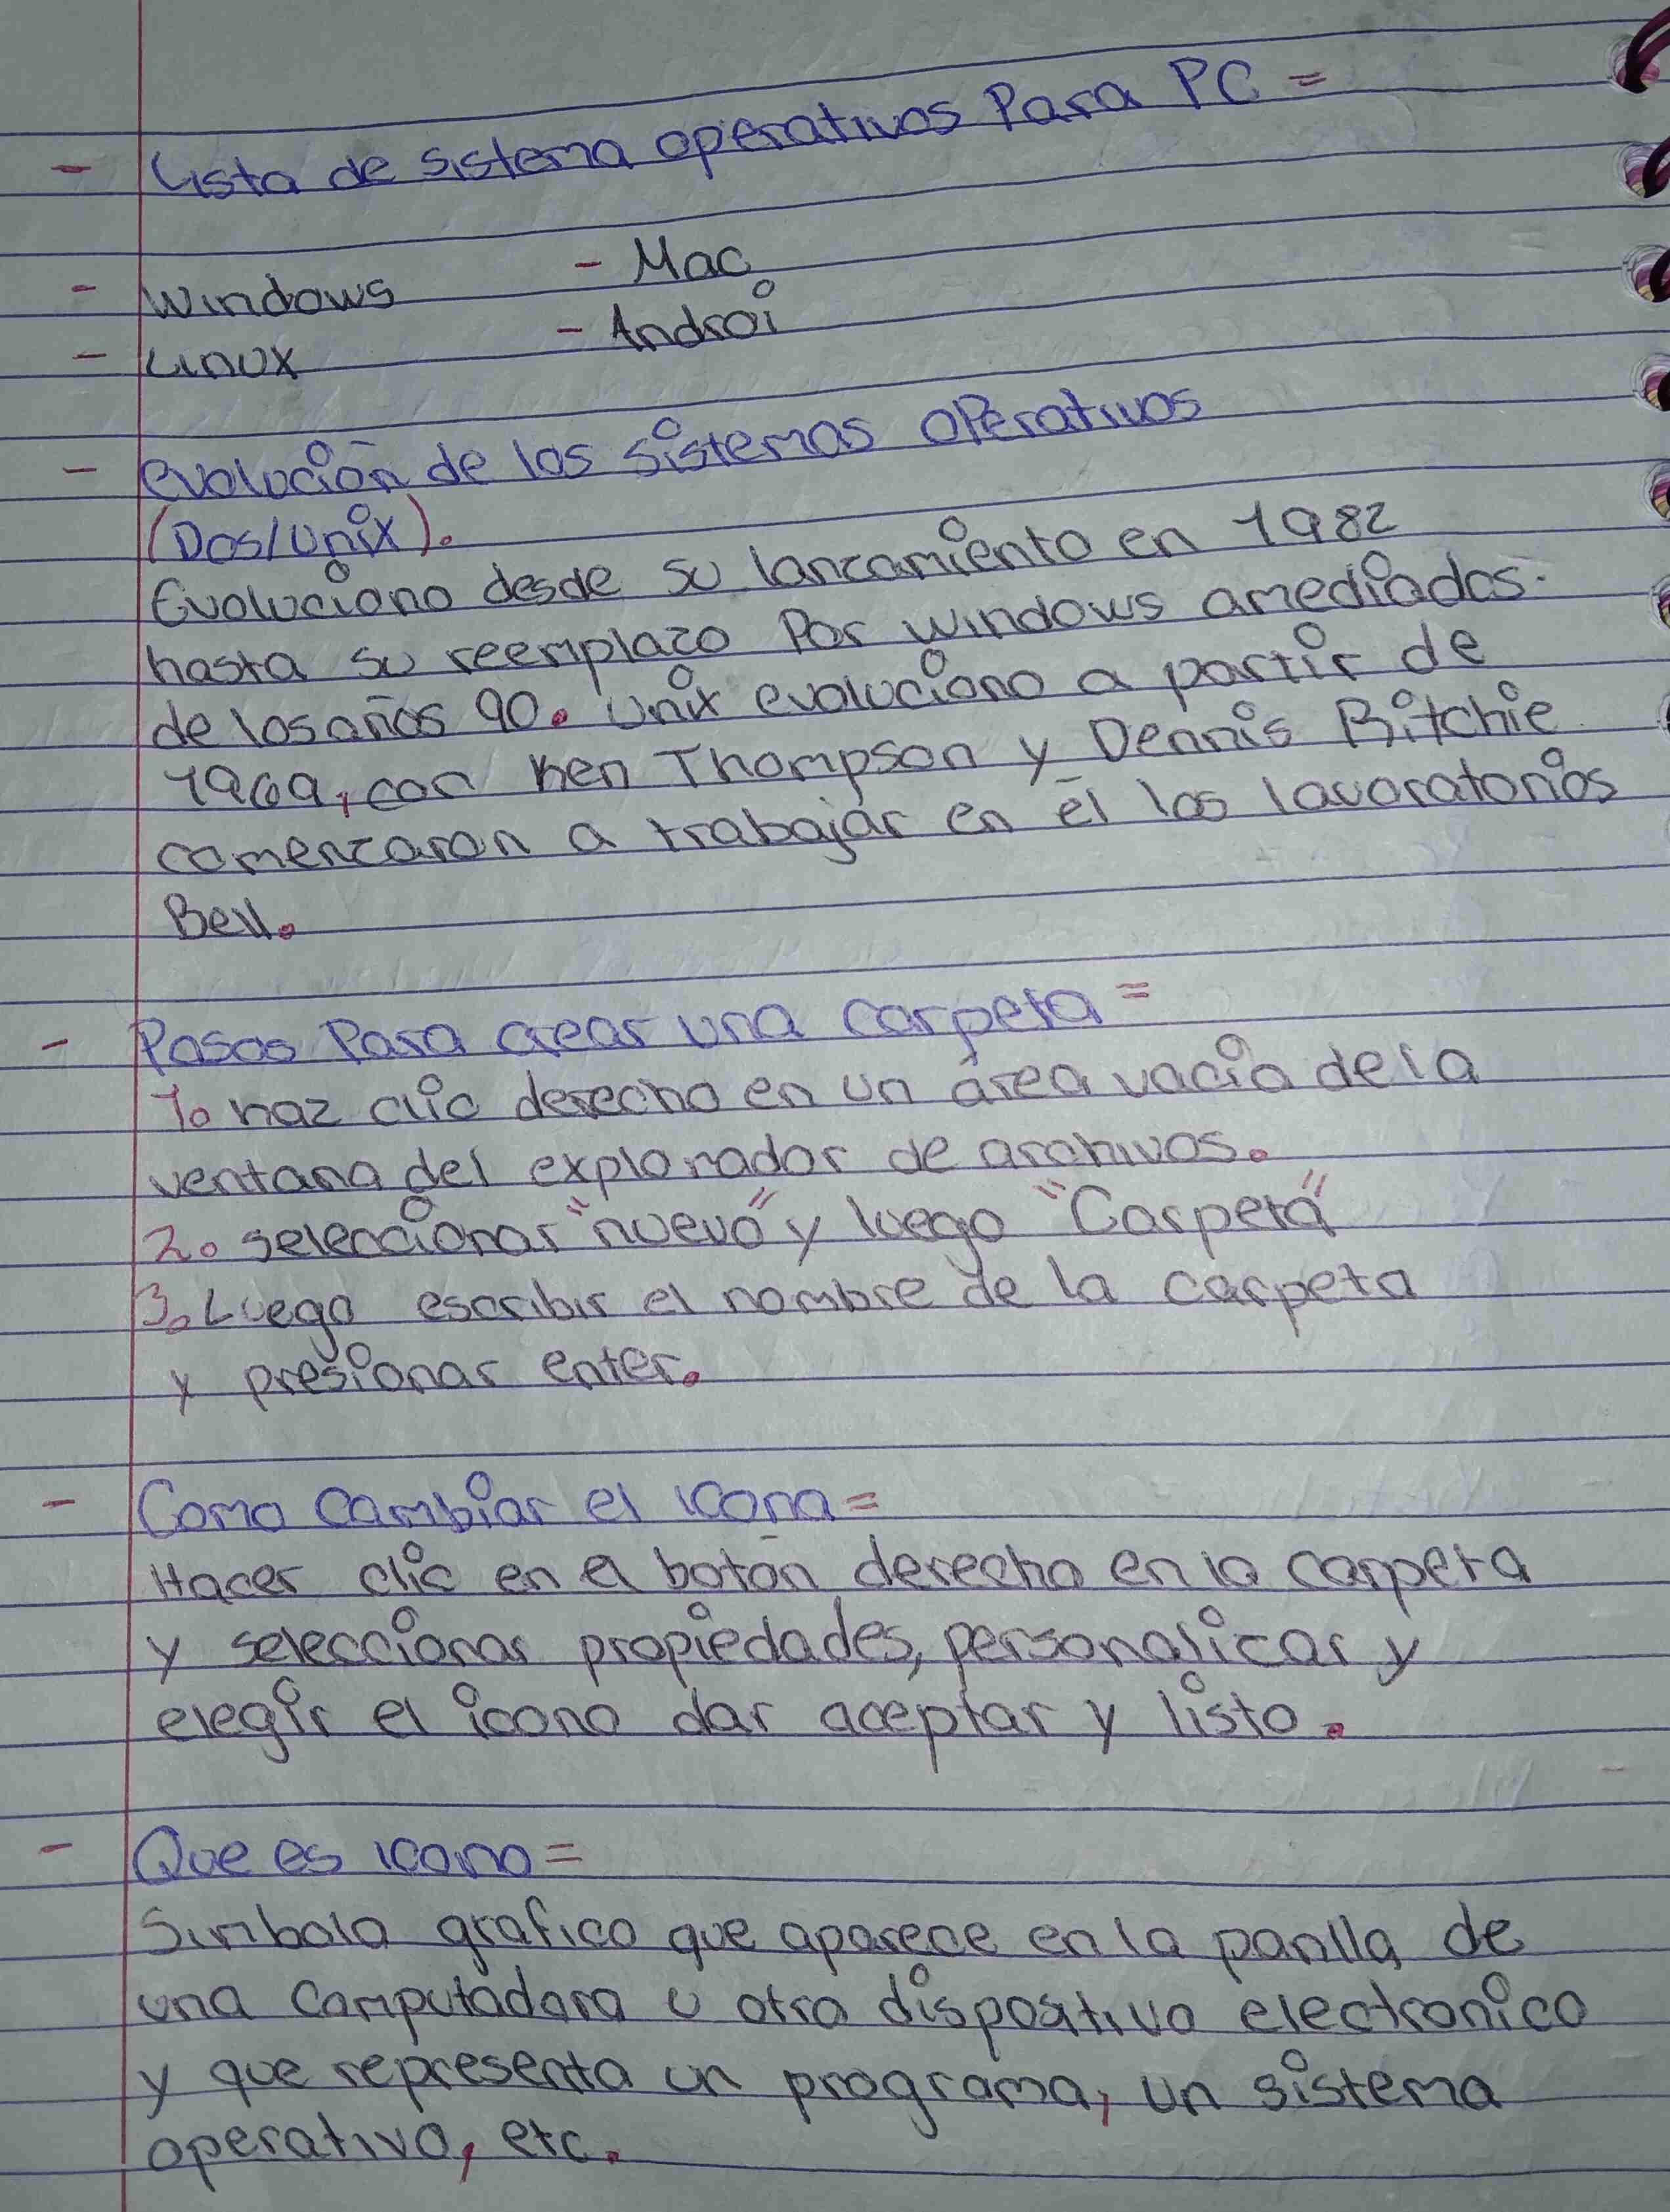 - Lista de sistema operativos Para PC =
- Windows - Mac
- Linux - Androi
- evolución de los sistemas operativos
(Dos/Unix).
Evoluciono desde su lanzamiento en 1982
hasta su reemplazo Por windows amediados.
de los años 90. Unix evoluciono a partir de
1969, con Ken Thompson y Dennis Ritchie
comenzaron a trabajar en él los lavoratorios
Bell.
- Pasos Para crear una carpeta =
1. haz clic derecho en un área vacia de la
ventana del explorador de archivos.
2. seleccionar "nuevo" y luego "Carpeta"
3. Luego escribir el nombre de la carpeta
y presionar enter.
- Como cambiar el icona =
Hacer clic en el botón derecho en la carpeta
y seleccionar propiedades, personalicar y
elegir el icono dar aceptar y listo.
- Que es icono =
Simbolo grafico que aparece en la panlla de
una computadora u otro dispositivo electronico
y que representa un programa, un sistema
operativo, etc.